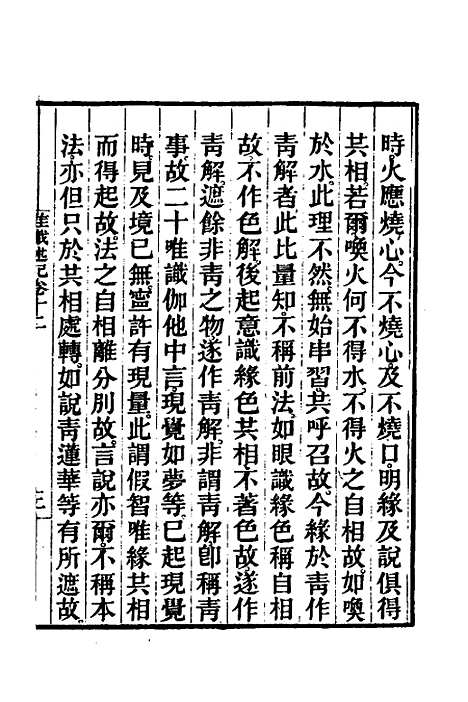 時火應燒心。今不燒心。及不燒口。明緣及說俱得
共相。若爾。喚火何不得水。不得火之自相故。如喚
於水。此理不然。無始串習。共呼召故。今緣於靑作
靑解者。此比量知。不稱前法。如眼識緣色稱自相
故。不作色解。後起意識緣色共相。不著色故。遂作
靑解。遮餘非靑之物。遂作靑解。非謂靑解卽稱靑
事故。二十唯識伽他中言。現覺如夢等。已起現覺
時。見及境已無。寧許有現量。此謂假智唯緣共相
而得起故。法之自相離分別故。言說亦爾。不稱本
法。亦但只於共相處轉。如說靑蓮華等有所遮故。
述記卷十二